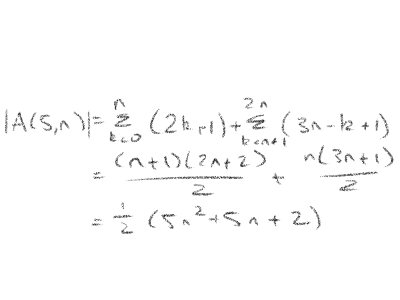 |A(5,n)| = \sum_{k=0}^{n} (2k+1) + \sum_{k=n+1}^{2n} (3n-k+1)
= \frac{(n+1)(2n+2)}{2} + \frac{n(3n+1)}{2}
= \frac{1}{2} (5n^2+5n+2)